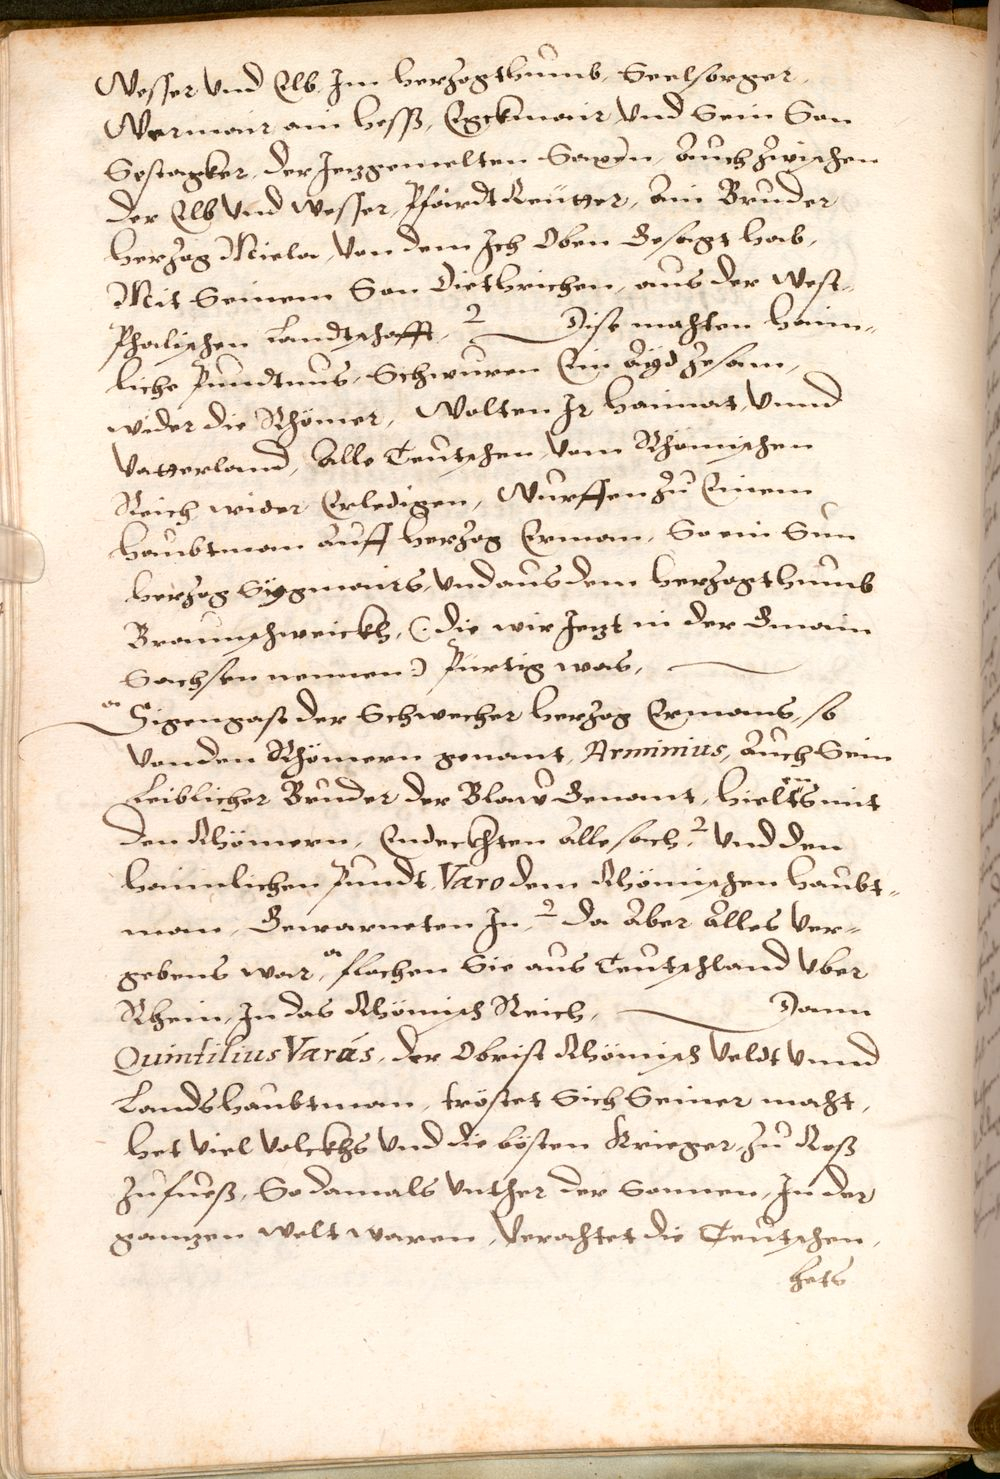 Wesser Vnd Elb, Im Herzogthumb, Seelsorger,
Wermair ain Hess, Egckmair Vnd Sein Son
Sestagker, der Jezgemelten Saxen, Auch zwischen
der Elb Vnd Wesser, Pfärdt Reütter, Ain Bruder
Herzog Miela, Von dem Jch Oben Gesagt hab,
Mit Seinem Son Diethrichen, aus der West-
Phalischen Landtschafft, Dise machten haim=
liche Pundtnus, Schwuren Ein Ayd zesam,
wider die Rhömer, Wolten Jr haimat, Vnnd
Vatterland, Alle Teutschen, Vom Rhömischen
Reich wider Erledigen, Wurffen zu Einem
Haubtman Auff Herzog Erman, So ein Sun
Herzog Sygmairs, Vnd aus dem Herzogthumb
Braunschweickh, (: die wir Jezt in der Gmain
Sachsen nennen:) Pürtig was,
Sigengast der Schwecher Herzog Ermans, so
Von den Rhömern genant, Arminius, Auch Sein
Leiblicher Bruder der Blaw Genant, hieltens mit
den Rhömern, Endeckhten Alle sach, Vnd den
haimlichen Pundt, Varo dem Rhömischen Haubt=
man, Gewarneten Jn, da Aber Alles Ver=
gebens war, flochen Sie aus Teutschland Vber
Rhein, Jn das Rhömisch Reich, Dann
Quintilius Varus, der Obrist Rhömisch Veldt Vnnd
Landshaubtman, tröstet Sich Seiner macht,
het Viel Volckhs Vnd die bösten Krieger, zu Roß
zu fueß, So damals Vnther der Sonnen, Jn der
ganzen Welt waren, Verachtet die Teutschen,
hets